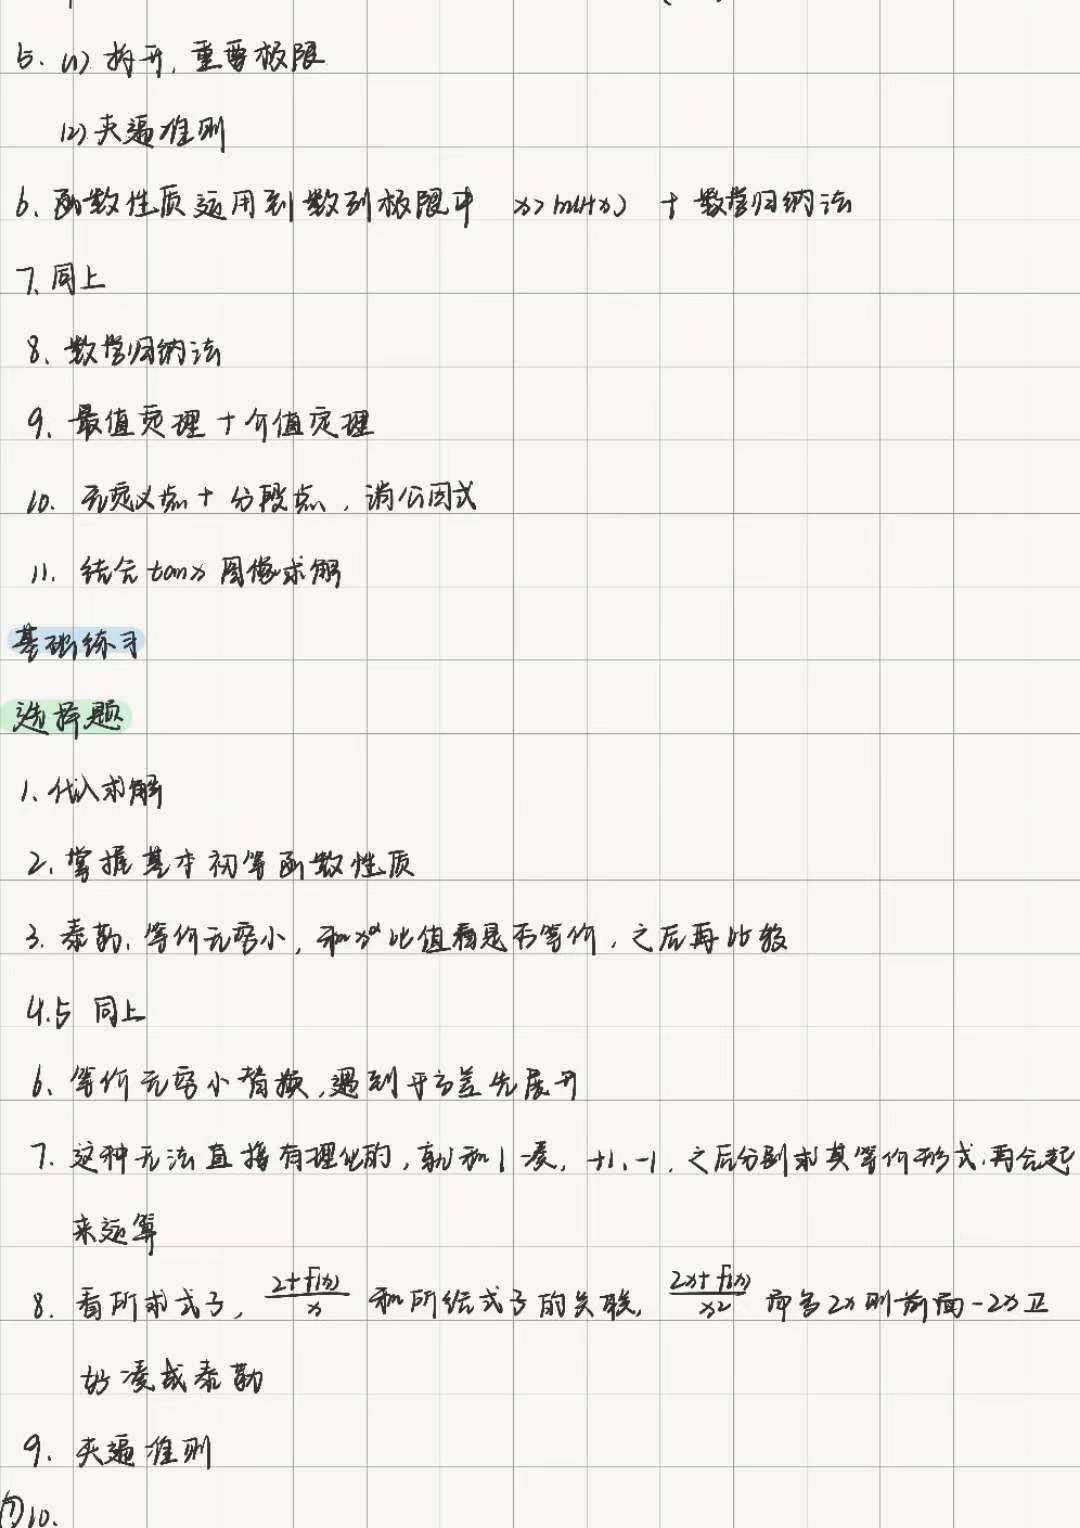 5. (1) 拆开, 重要极限
(2) 夹逼准则
6. 函数性质运用到数列极限中 x>ln(1+x) + 数学归纳法
7. 同上
8. 数学归纳法
9. 最值定理+介值定理
10. 无定义点+分段点, 消公因式
11. 结合tanx图像求解
基础练习
选择题
1. 代入求解
2. 掌握基本初等函数性质
3. 泰勒, 等价无穷小, 和xᵅ比值看是否等价, 之后再比较
4.5 同上
6. 等价无穷小替换, 遇到平方差先展开
7. 这种无法直接有理化的, 就和1凑, +1, -1, 之后分别求其等价形式, 再合起
来运算
8. 看所求式子, (2+f(x))/x 和所给式子的关联, (2x+f(x))/x² 即多2x则前面-2x正
好凑成泰勒
9. 夹逼准则
10.